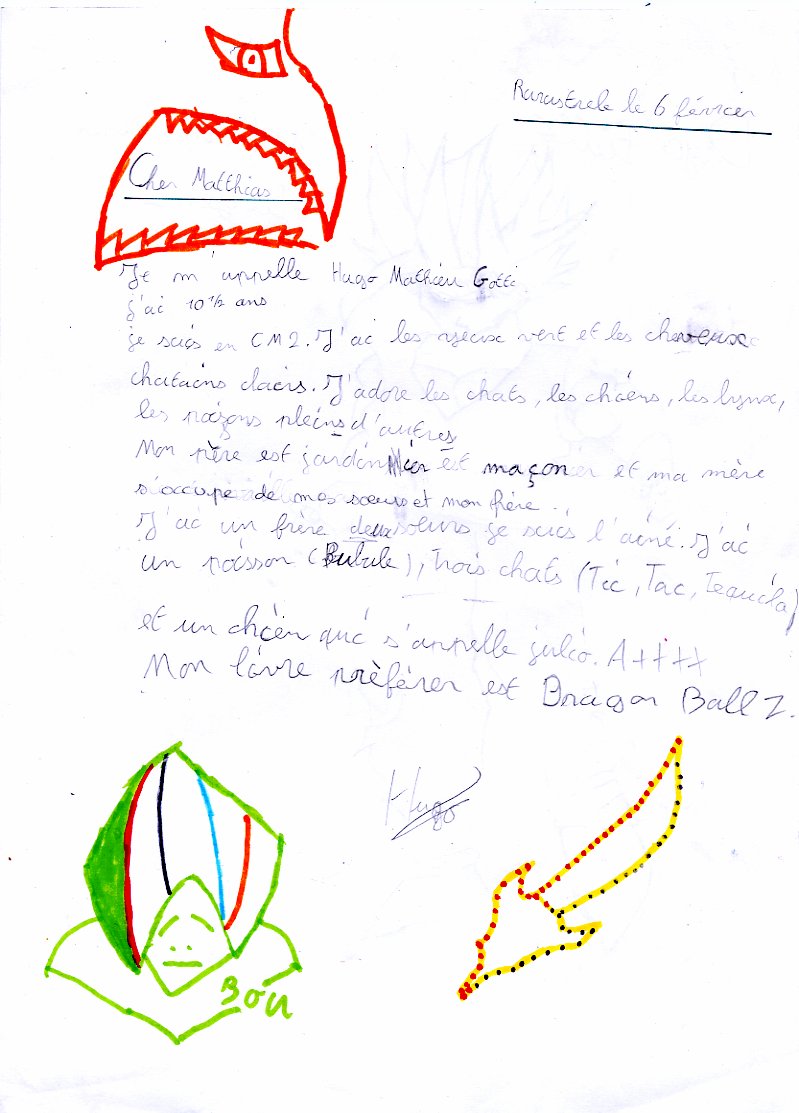 le 6 février
Cher Matthias
Je m'appelle Hugo Mathieu Gotti
j'ai 10 1/2 ans
je suis en CM2. J'ai les yieux vert et les cheveux
chatains clairs. J'adore les chats, les chiens, les lynx,
les poizons pleins d'autres
Mon père est jardinier est maçon et ma mère
s'occupe de mes sœurs et mon frère.
J'ai un frère deux sœurs je suis l'ainé. J'ai
un poisson (Bubule), trois chats (Tic, Tac, Tequila)
et un chien qui s'appelle julio. A++++
Mon livre prèférer est Dragon Ball Z.
Hugo
Bou